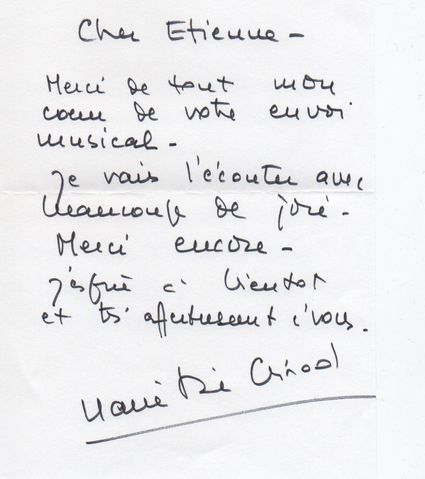 Cher Etienne -
Merci de tout mon
cœur de votre envoi
musical -
je vais l'écouter avec
beaucoup de joie -
Merci encore -
j'espère à bientôt
et très affectueusement à vous.
Marie